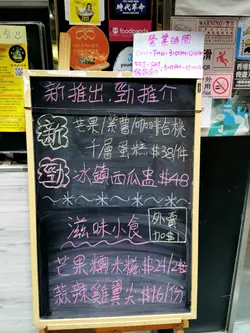 時代革命
foodpanda
營業時間
新推出.勁推介
新 芒果/紫薯/咖啡合桃
千層蛋糕 $38/件
勁 冰鎮西瓜盅 $48
滋味小食
外賣
加$1
芒果糯米糍 $24/2粒
蒜辣雞翼尖 $16/份